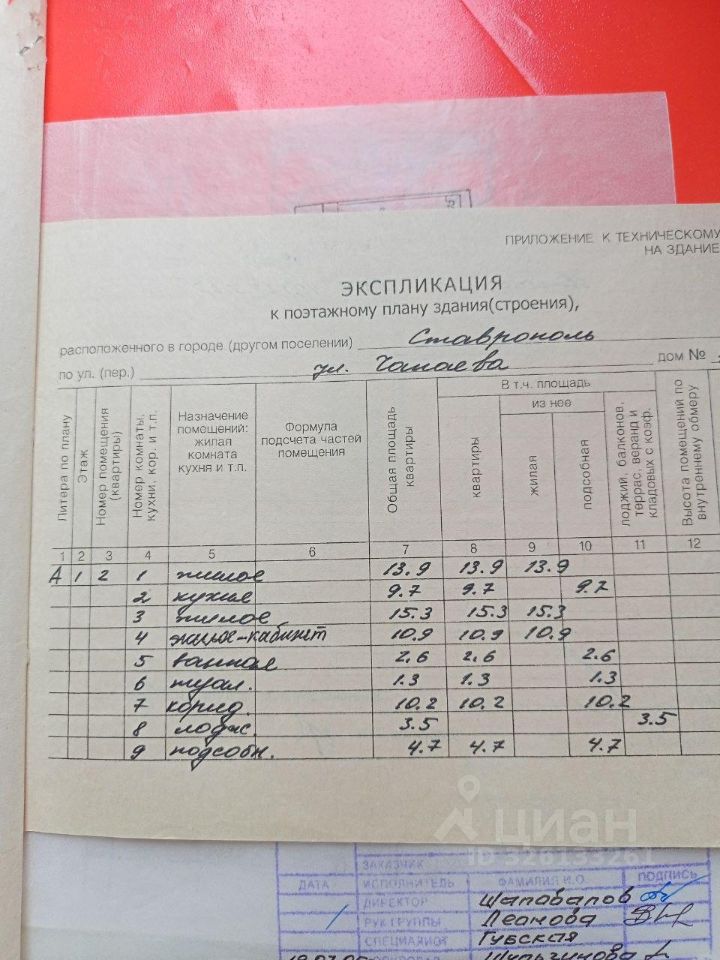 ПРИЛОЖЕНИЕ К ТЕХНИЧЕСКОМУ
НА ЗДАНИЕ
ЭКСПЛИКАЦИЯ
к поэтажному плану здания(строения),
расположенного в городе (другом поселении) Ставрополь
по ул. (пер.) ул. Чапаева дом №
Литера по плану
Этаж
Номер помещения (квартиры)
Номер комнаты, кухни, кор. и т.п.
Назначение помещений: жилая комната кухня и т.п.
Формула подсчета частей помещения
Общая площадь квартиры
В т.ч. площадь
квартиры
из нее
жилая
подсобная
лоджий, балконов, террас, веранд и кладовых с коэф.
Высота помещений по внутреннему обмеру
1 2 3 4 5 6 7 8 9 10 11 12
А 1 2 1 жилое 13.9 13.9 13.9
2 кухня 9.7 9.7 9.7
3 жилое 15.3 15.3 15.3
4 жилое-кабинет 10.9 10.9 10.9
5 ванная 2.6 2.6 2.6
6 туал. 1.3 1.3 1.3
7 корид. 10.2 10.2 10.2
8 лодж. 3.5 3.5
9 подсобн. 4.7 4.7 4.7
циан
ЗАКАЗЧИК
ДАТА ИСПОЛНИТЕЛЬ ФАМИЛИЯ И.О. ПОДПИСЬ
ДИРЕКТОР Шаповалов
РУК ГРУППЫ Леонова
СПЕЦИАЛИСТ Губская
Шульгинова